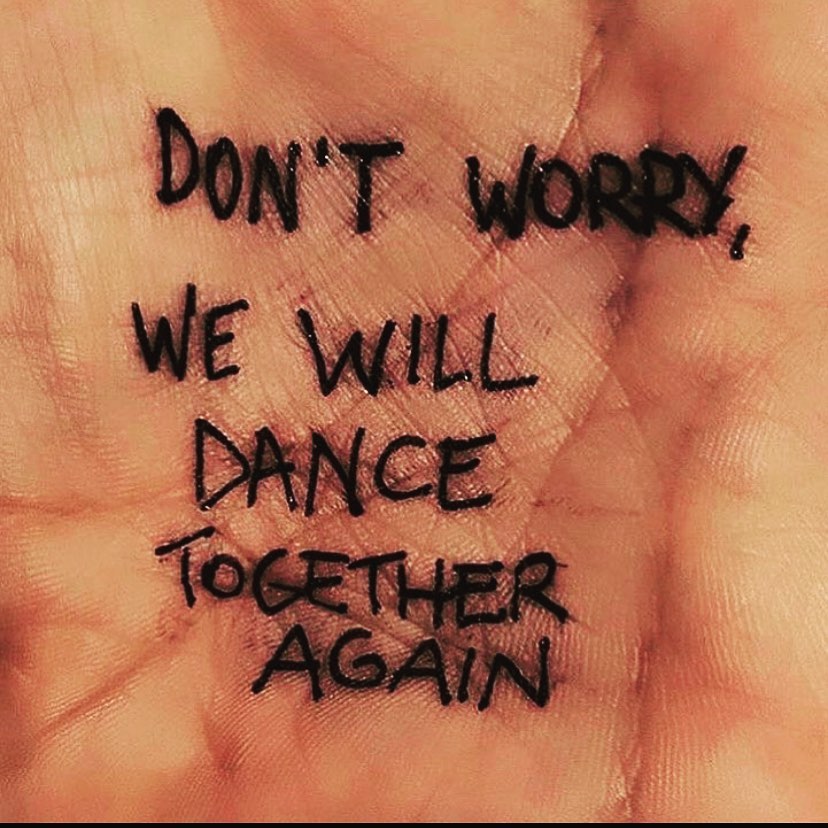 DON'T WORRY,
WE WILL
DANCE
TOGETHER
AGAIN